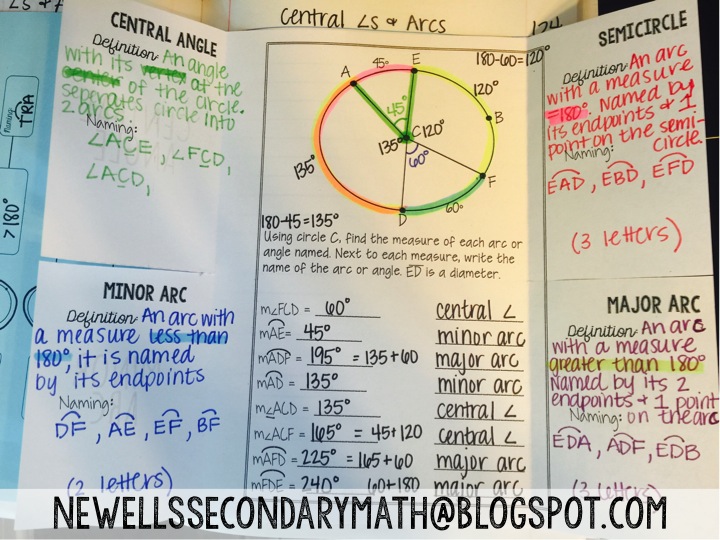 ∠s &
Central ∠s & Arcs
124
Naming:
TRA
>180°
CENTRAL ANGLE
Definition: An angle
with its vertex at the
center of the circle.
seperates circle into
2 arcs.
Naming:
∠ACE, ∠FCD,
∠ACD,
MINOR ARC
Definition: An arc with
a measure less than
180°, it is named
by its endpoints
Naming:
DF, AE, EF, BF
(2 letters)
180-60=120°
A
45°
E
120°
B
45°
C
120°
135°
60°
135°
F
D
60°
180-45=135°
Using circle C, find the measure of each arc or
angle named. Next to each measure, write the
name of the arc or angle. ED is a diameter.
m∠FCD = 60° central ∠
mAE = 45° minor arc
mADF = 195° = 135+60 major arc
mAD = 135° minor arc
m∠ACD = 135° central ∠
m∠ACF = 165° = 45+120 central ∠
mAFD = 225° = 165+60 major arc
mFDE = 240° 60+180 major arc
SEMICIRCLE
Definition: An arc
with a measure
=180°. Named by
its endpoints + 1
point on the semi-
circle.
Naming:
EAD, EBD, EFD
(3 letters)
MAJOR ARC
Definition: An arc
with a measure
greater than 180°
Named by its 2
endpoints + 1 point
on the arc
Naming:
EDA, ADF, EDB
(3 letters)
NEWELLSSECONDARYMATH@BLOGSPOT.COM